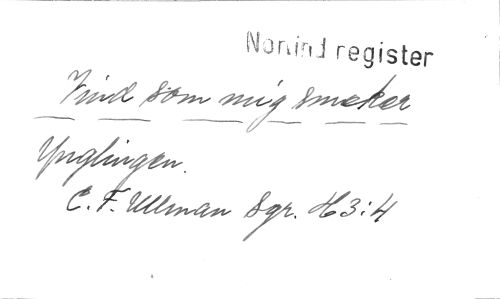 Norlind register
Vind som mig smeker
Ynglingen.
C. F. Ullman Sgr. H3:4